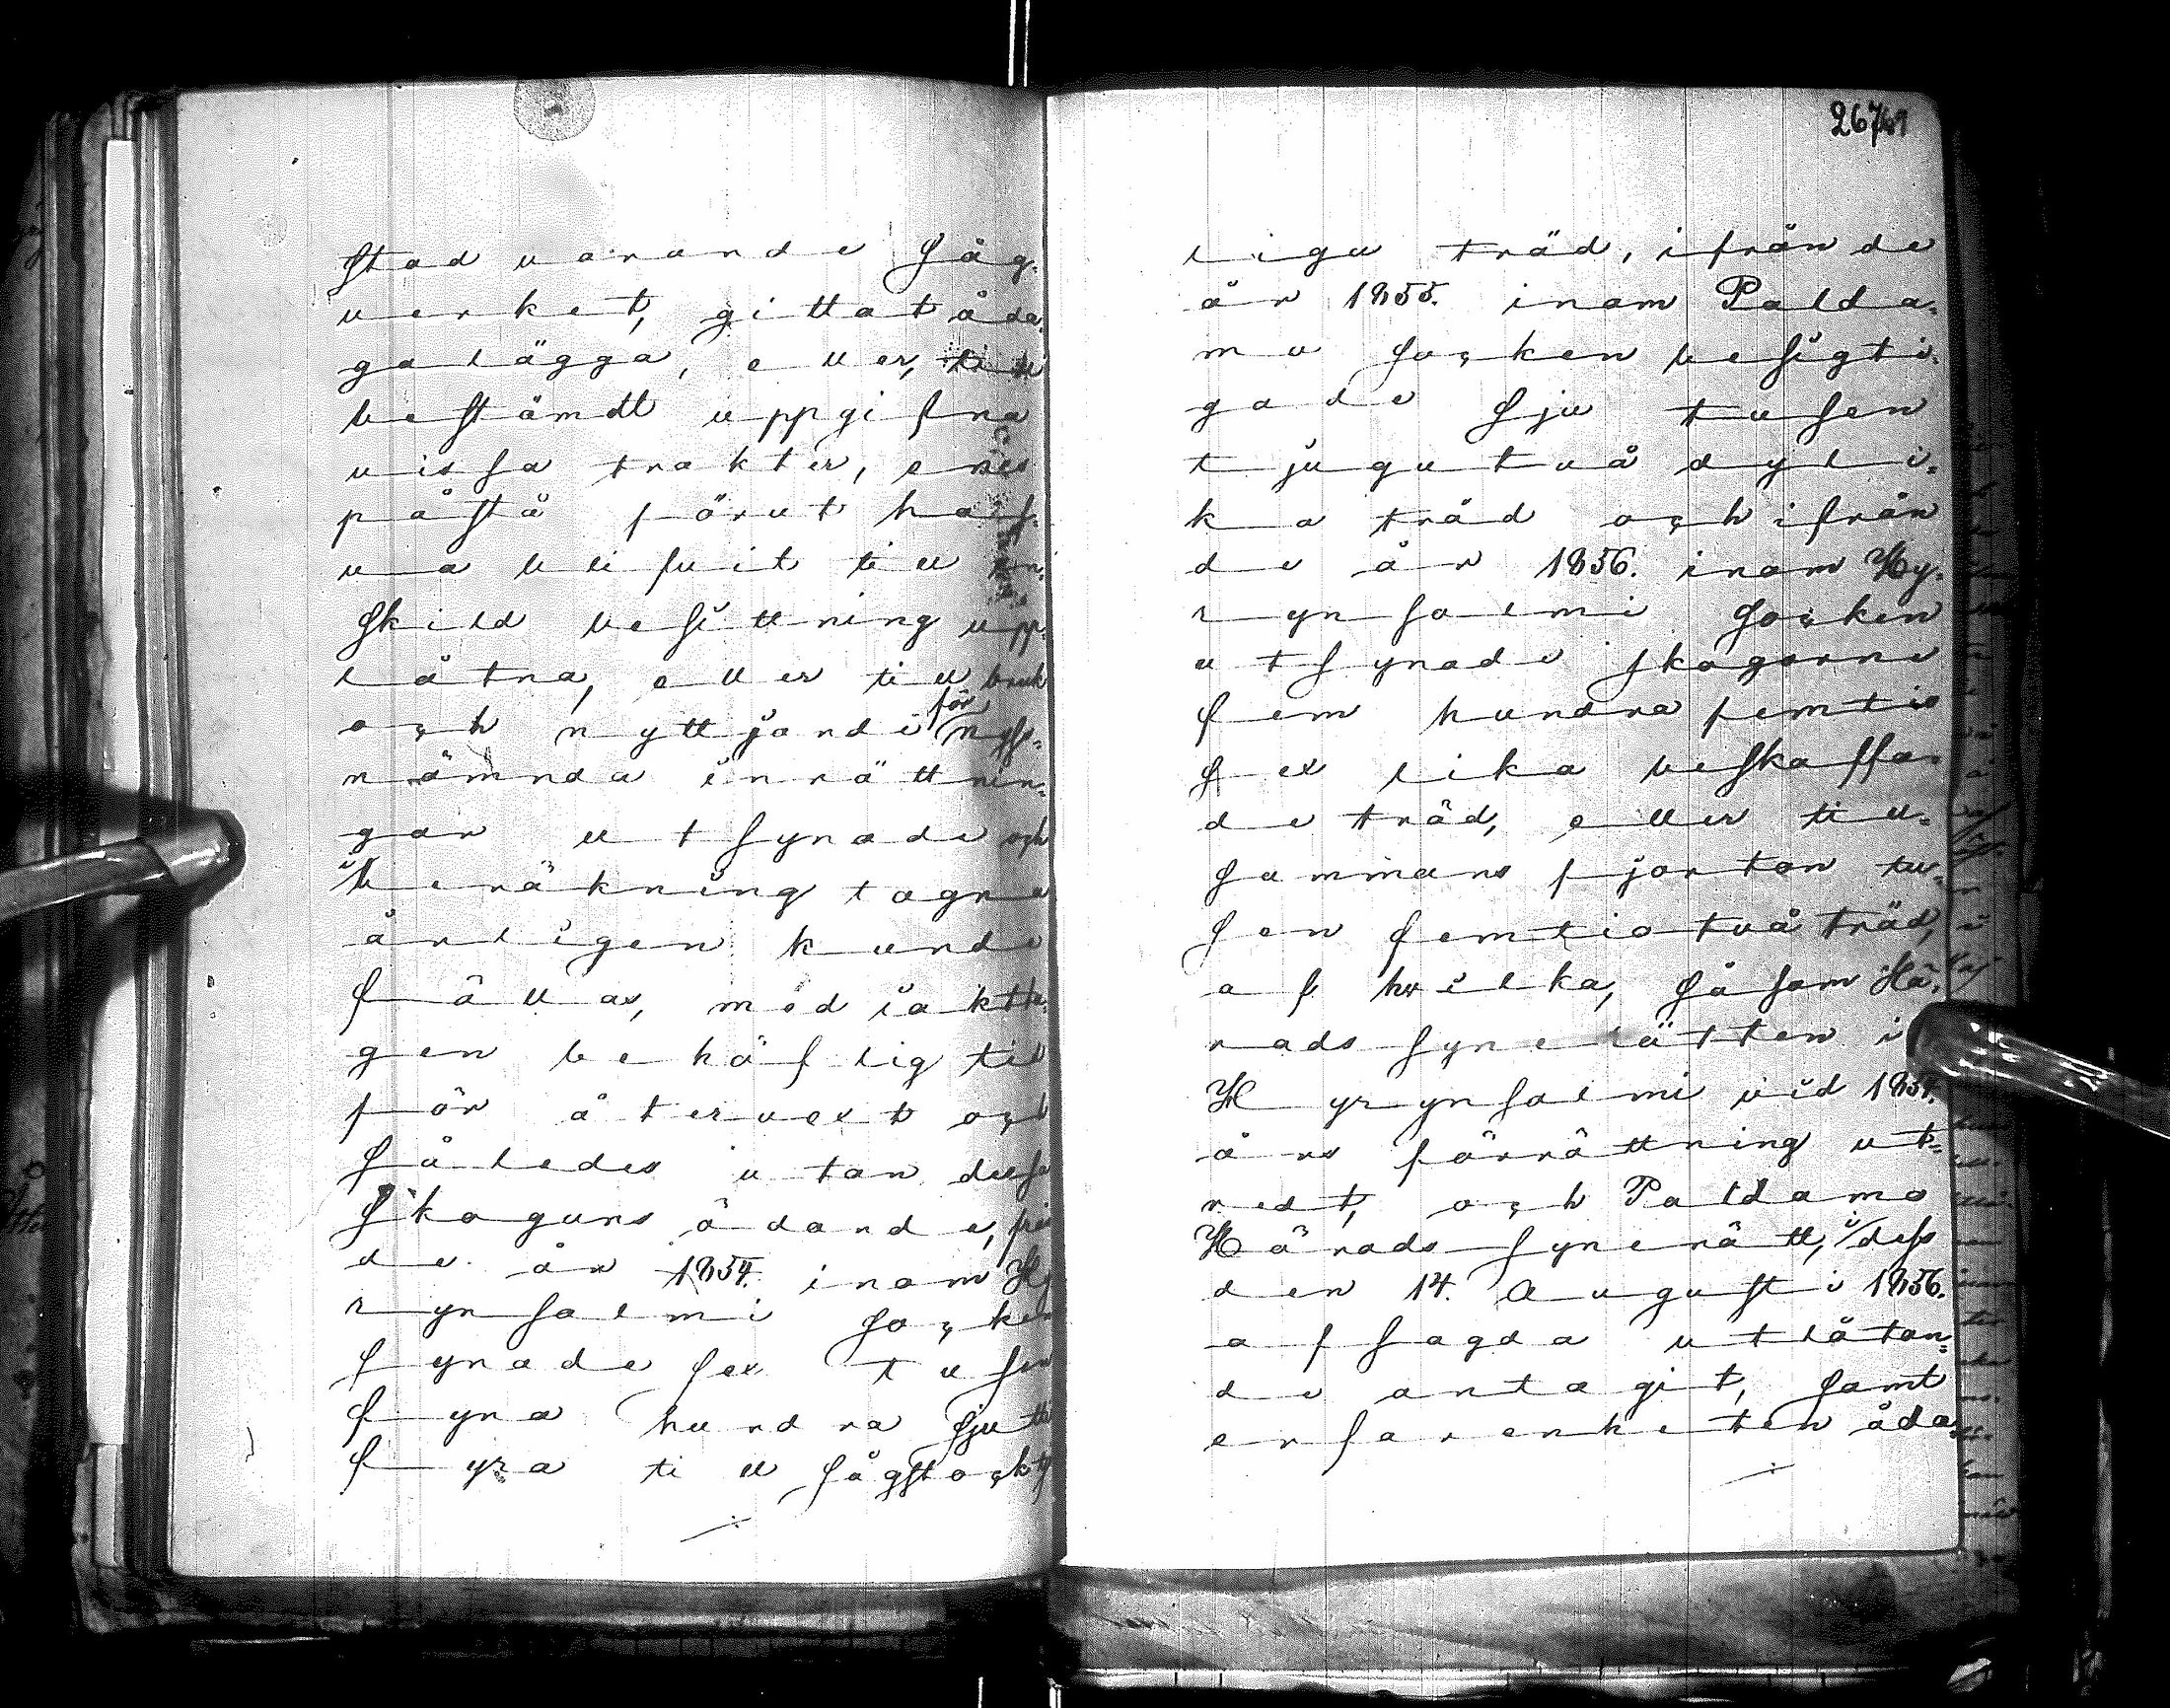 stad varande Såg-
verket, gittat åda-
galägga, eller, till
bestämdt uppgifna
vissa trakter, enes
påstå förut haf-
va blifvit till en-
skild besittning upp-
låtna, eller till bruk
och nyttjande för nyss-
nämnda inrättnin-
gar utsynade och
i beräkning tagna
årligen kunde
fällas, med iaktta-
gen behöflig tid
för återvext och
således utan dessa
skogars ödande, från
de år 1854. inom Hy
rynsalmi Socken
synade sex tusen
fyra hundra sjutti
fyra till sågstock ty
liga träd, ifrån de
år 1855. inom Palda-
mo Socken besigti-
gade sju tusen
tjugutvå dyli-
ka träd och ifrån
de år 1856. inom Hy-
rynsalmi Socken
utsynade skogarne
fem hundra femtio
sex lika beskaffa-
de träd, eller till-
sammans fjorton tu-
sen femtiotvå träd,
af hvilka, såsom Hä-
rads synerätten i
Hyrynsalmi vid 1854.
års förrättning ut-
redt, och Paldamo
Härads synerätt, i dess
den 14. Augusti 1856.
afsagda utlåtan-
de antagit, samt
erfarenheten åda-
267